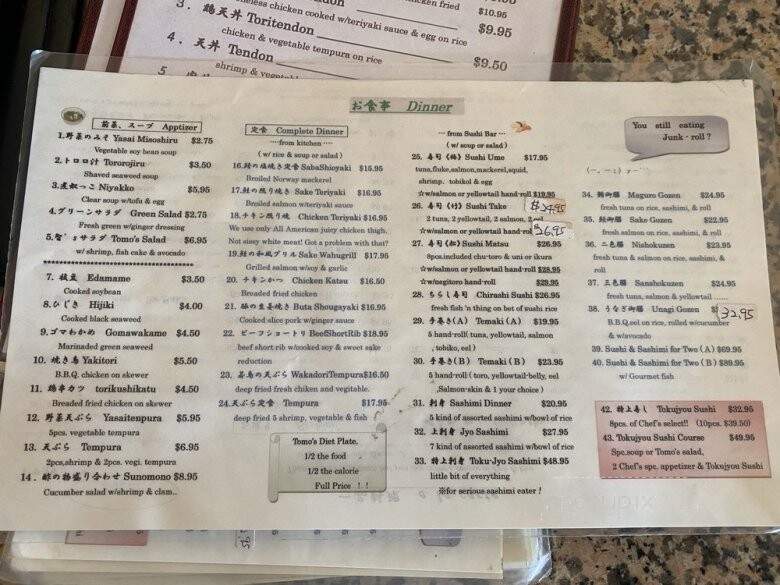 neless chicken cooked w/teriyaki sauce & egg on rice
$10.95
3. 鶏天丼 Toritendon $9.95
chicken & vegetable tempura on rice
4. 天丼 Tendon $9.50
shrimp & veget
5
お食事 Dinner
前菜、スープ Apptizer
1.野菜のみそ Yasai Misoshiru $2.75
Vegetable soy bean soup
2.トロロ汁 Tororojiru $3.50
Shaved seaweed soup
Niyakko $5.95
Clear soup w/tofu & egg
4.グリーンサラダ Green Salad $2.75
Fresh green w/ginger dressing
サラダ Tomo's Salad $6.95
w/ shrimp, fish cake & avocado
7. 枝豆 Edamame $3.50
Cooked soybean
8.ひじき Hijiki $4.00
Cooked black seaweed
9.ゴマわかめ Gomawakame $4.50
Marinaded green seaweed
10. 焼き鳥 Yakitori $5.50
B.B.Q. chicken on skewer
11. 鶏串カツ torikushikatu $4.50
Breaded fried chicken on skewer
12. 野菜天ぷら Yasaitenpura $5.95
5pcs. vegetable tempura
13. 天ぷら Tempura $6.95
2pcs,shrimp & 2pcs. vegi. tempura
14. 酢の物盛り合わせ Sunomono $8.95
Cucumber salad w/shrimp & clsm..
定食 Complete Dinner
----from kitchen----
( w/ rice & soup or salad )
16.鯖の塩焼き定食 SabaShioyaki $15.95
Broiled Norway mackerel
17.鮭の照り焼き Sake Teriyaki $16.95
Broiled salmon w/teriyaki sauce
18.チキン照り焼 Chicken Teriyaki $16.95
We use only All American juicy chicken thigh.
Not sissy white meat! Got a problem with that?
19.鮭の和風グリル Sake Wahugrill $17.95
Grilled salmon w/soy & garlic
20. チキンかつ Chicken Katsu $16.50
Breaded fried chicken
21. 豚の生姜焼き Buta Shougayaki $16.95
Cooked slice pork w/ginger sauce
22. ビーフショートリブ BeefShortRib $18.95
beef short rib w/cooked soy & sweet sake
reduction
23. 若鳥の天ぷら WakadoriTempura $16.50
deep fried fresh chiken and vegitable.
24.天ぷら定食 Tempura $17.95
deep fried 5 shrimp, vegetable & fish
Tomo's Diet Plate.
1/2 the food
1/2 the calorie
Full Price !!
--- from Sushi Bar ---
( w/ soup or salad )
25. 寿司 (梅) Sushi Ume $17.95
tuna,fluke,salmon,mackerel,squid,
shrimp. tobikol & egg
☆w/salmon or yellowtail hand-roll $19.95
26. 寿司 (竹) Sushi Take $24.95
2 tuna, 2 yellowtail, 2 salmon, 2
☆w/salmon or yellowtail hand-rol $26.95
27. 寿司 (松) Sushi Matsu $26.95
8pcs.included chu-toro & uni or ikura
☆w/salmon or yellowtail hand-roll $28.95
☆w/negitoro hand-roll $29.95
28. ちらし寿司 Chirashi Sushi $26.95
fresh fish 'n thing on bet of sushi rice
29. 手巻き(A) Temaki (A) $19.95
5 hand-roll( tuna, yellowtail, salmon
, tobiko, eel )
30. 手巻き(B) Temaki (B) $23.95
5 hand-roll ( toro, yellowtail-belly, eel
,Salmon-skin & 1 your choice )
31. 刺身 Sashimi Dinner $20.95
5 kind of assorted sashimi w/bowl of rice
32. 上刺身 Jyo Sashimi $27.95
7 kind of assorted sashimi w/bowl of rice
33. 特上刺身 Toku-Jyo Sashimi $48.95
little bit of everything
※for serious sashimi eater !
You still eating
Junk - roll ?
34. 鮪御膳 Maguro Gozen $24.95
fresh tuna on rice, sashimi, & roll
35. 鮭御膳 Sake Gozen $22.95
fresh salmon on rice, sashimi, & roll
36. 二色膳 Nishokuzen $23.95
fresh tuna & salmon on rice, sashimi, &
roll
37. 三色膳 Sanshokuzen $24.95
fresh tuna, salmon & yellowtail ......
38. うなぎ御膳 Unagi Gozen $32.95
B.B.Q.eel on rice, rolled w/cucumber
& w/avocado
39. Sushi & Sashimi for Two (A) $69.95
40. Sushi & Sashimi for Two (B) $89.95
w/ Gourmet fish
42. 特上寿し Tokujyou Sushi $32.95
8pcs. of Chef's select!! (10pcs. $39.50)
43. Tokujyou Sushi Course $49.95
Spc.soup or Tomo's salad,
2 Chef's spc. appetizer & Tokujyou Sushi